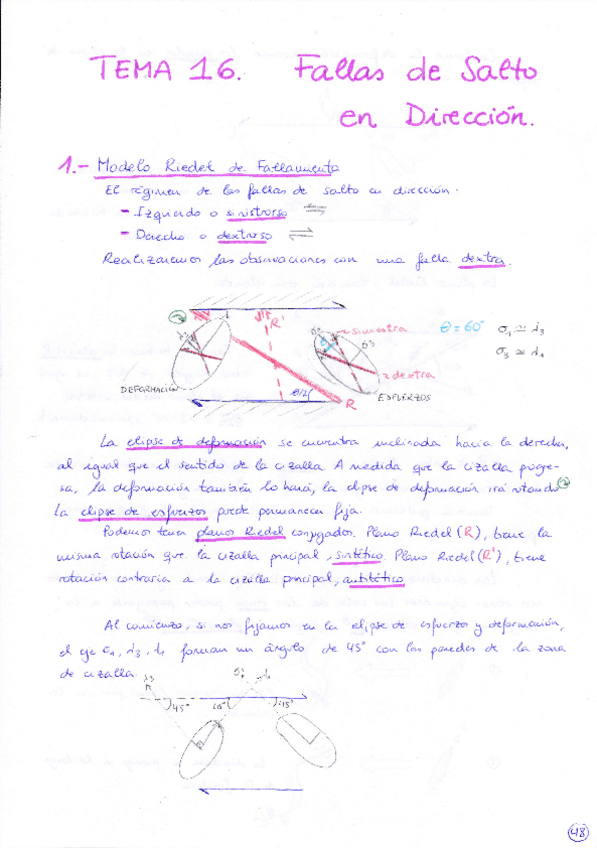 TEMA 16. Fallas de Salto
en Dirección.
1.- Modelo Riedel de Fallamiento
El régimen de las fallas de salto en dirección.
- Izquierdo o sinistrorso
- Derecho o dextrorso
Realizaremos las observaciones con una falla dextra.
R'
λ3
σ3
sinistra
θ = 60°
σ1 ≃ λ3
σ3 ≃ λ1
dextra
DEFORMACIÓN
θ/2
R
ESFUERZOS
La elipse de deformación se encuentra inclinada hacia la derecha,
al igual que el sentido de la cizalla. A medida que la cizalla progre-
sa, la deformación también lo hará, la elipse de deformación irá rotando
la elipse de esfuerzos puede permanecer fija.
Podemos tener planos Riedel conjugados. Plano Riedel (R), tiene la
misma rotación que la cizalla principal, sintético. Plano Riedel (R'), tiene
rotación contraria a la cizalla principal, antitético
Al comienzo, si nos fijamos en la elipse de esfuerzo y deformación,
el eje σ1, λ3, λ1 forman un ángulo de 45° con las paredes de la zona
de cizalla.
λ3
σ1
λ1
45°
45°
48